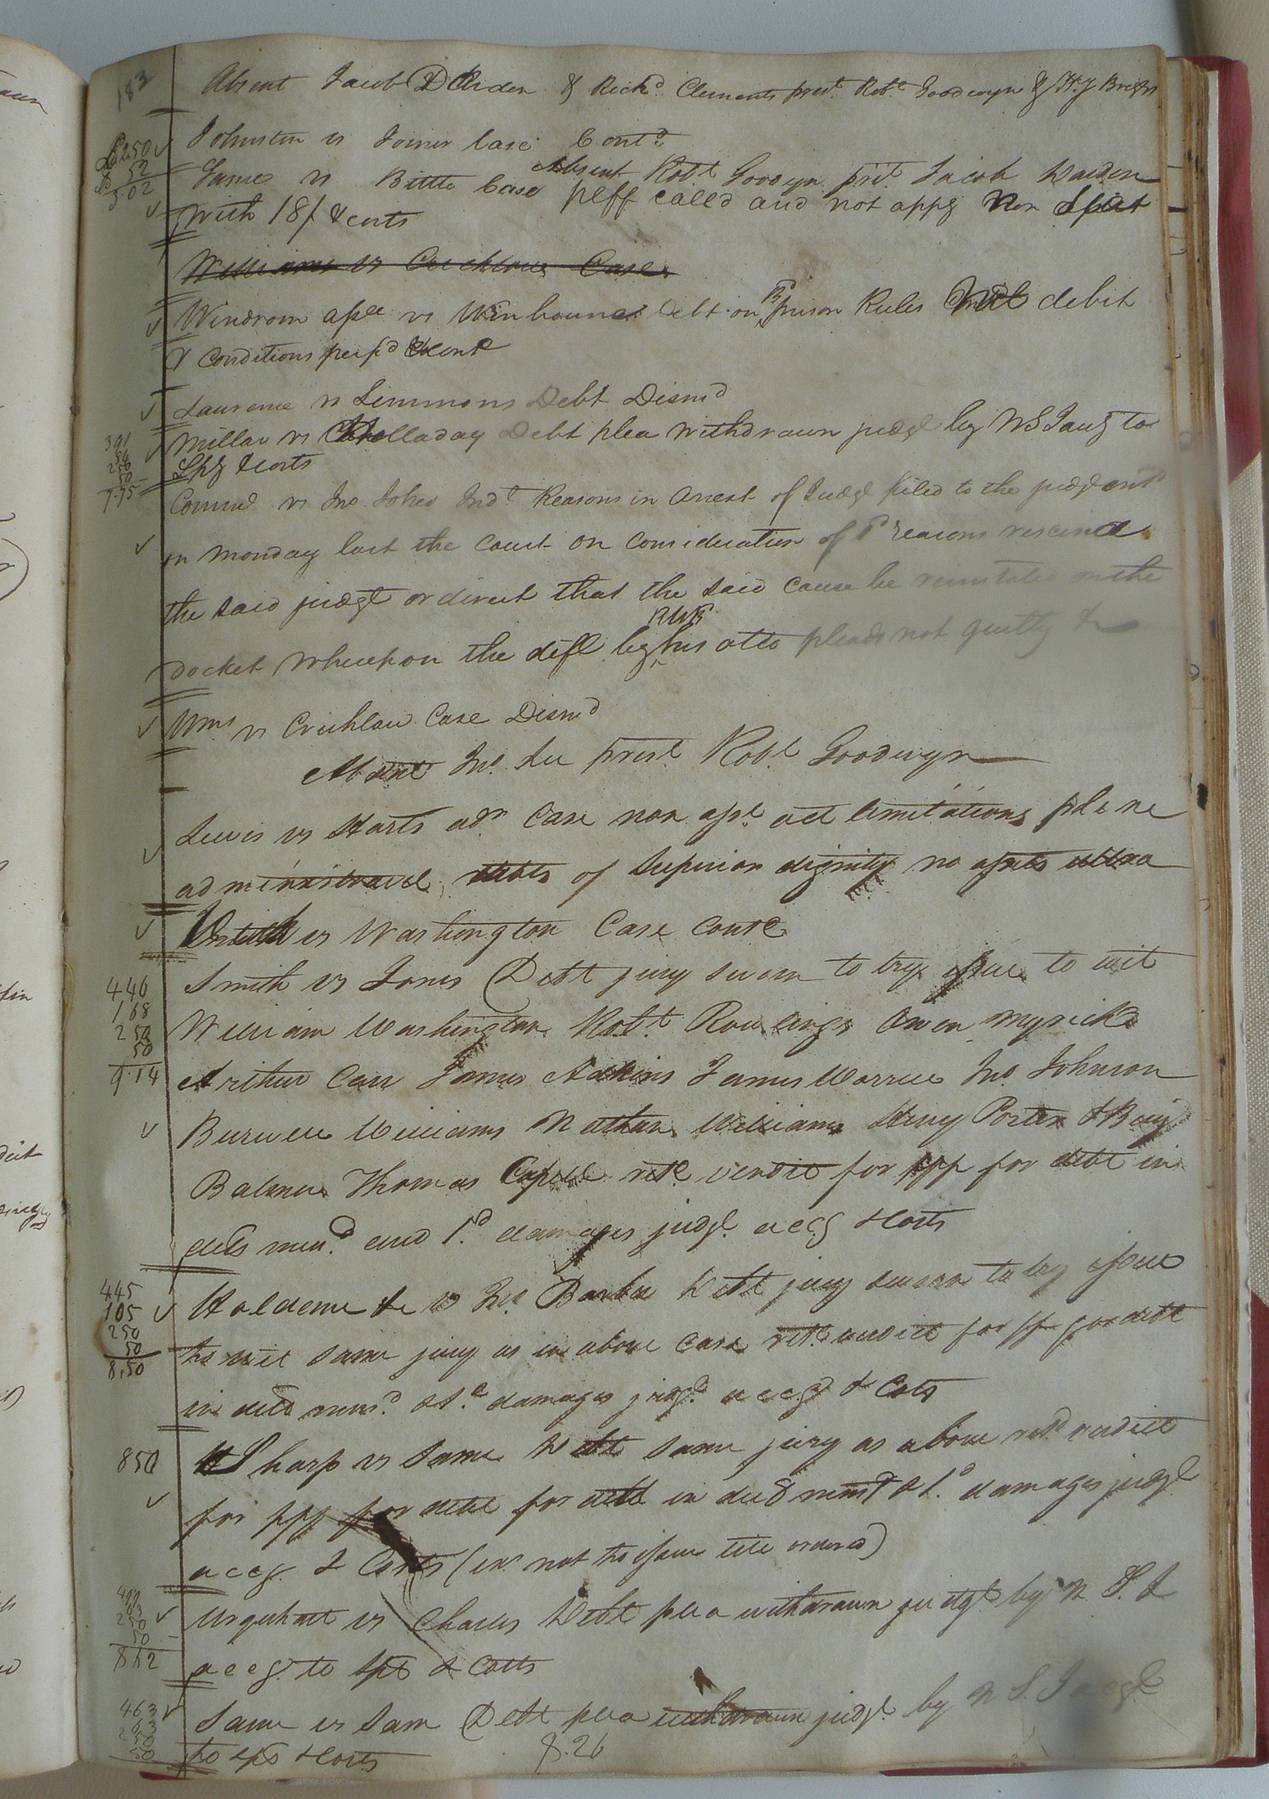 183
Absent Jacob Darden & Richd. Clements prest. Robt. Goodwyn & H. J Briggs
£250 Johnston vs Joiner Case Contd
52
302
James vs Bittle Case Absent Robt Goodwyn prst. Jacob Darden
plff calld and not appg Non Suit
with 18/ & costs
Williams vs Crichlow Case
Windrom apee vs debt on Bd prison Rules debit
& Conditions perfd Cont
Laurence vs Simmons Debt Dismd
391
250
50
7.75
Millar vs Holladay Debt plea withdrawn judgt by N S Jaug to
Spy & costs
Commd vs Jno. Indt Reasons in Arrest of Judgt filed to the judgment
on Monday last the Court on consideration of sd reasons rescind
the said judgt or direct that the said cause be reinstated on the
docket Whereupon the deft by his atto pleads not guilty &c
Wms vs Crichlow Case Dismd
Absent Jno. Lee prest Robt Goodwyn
Lewis vs Harts adr Case non apt. act limitations plene
administravit, debts of Superior dignity no assets ultra
vs Washington Case Cont
446
168
250
50
9.14
Smith vs Jones Debt jury sworn to try issue to wit
William Washington Robt. Rawlings Owen Myrick
Arthur Carr James Adkins James Warren Jno. Johnson
Burwell Williams Nathan Williams Henry Porter & Benj
Balmer Thomas retd verdict for plff for debt in
decls mend. and 1d. damages judgt. accg & Costs
445
105
250
50
8.50
Haldeme &c vs Jno Barker Debt jury sworn to try issue
to wit same jury as in above case retd. verdict for plf for debt
in decld mend. & 1d damages judgt. accgd & Costs
850
Sharp vs Same Debt same jury as above retd verdict
for plff for debt for debt in decld mend & 1d damages judgt
accg. & Costs (Exn not to issue till ordered)
250
50
8.12
Urquhart vs Charles Debt plea withdrawn judgt by N S. J
accg. to Spe & Costs
463
63
250
50
Same vs Sam Debt plea withdrawn judgt. by N S. J accg
to spe & Costs
8.26